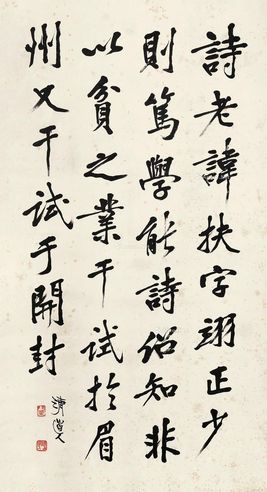 詩老諱扶字翊正少
則篤學能詩俗知非
以貧之業干試於眉
州又干試于開封